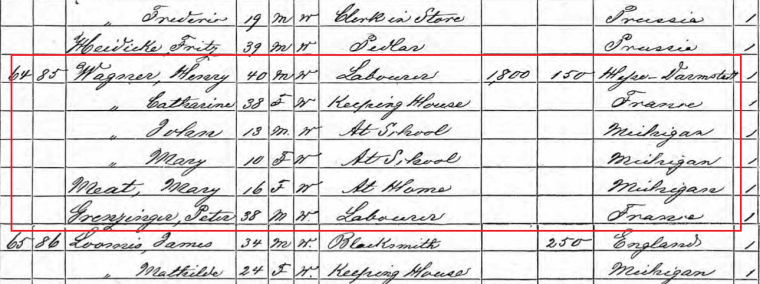 " Frederic 19 M W Clerk in Store Prussia 1
Heidicke, Fritz 39 M W Pedlar Prussia 1
64 85 Wagner, Henry 40 M W Labourer 1,800 150 Hesse-Darmstadt 1
" Catharine 38 F W Keeping House France 1
" John 13 M. W At School Michigan 1
" Mary 10 F W At School Michigan 1
Meat, Mary 16 F W At Home Michigan 1
Grenzinger, Peter 38 M W Labourer France 1
65 86 Loomis, James 34 M W. Blacksmith 250 England 1
" Mathilde 24 F W. Keeping House Michigan 1